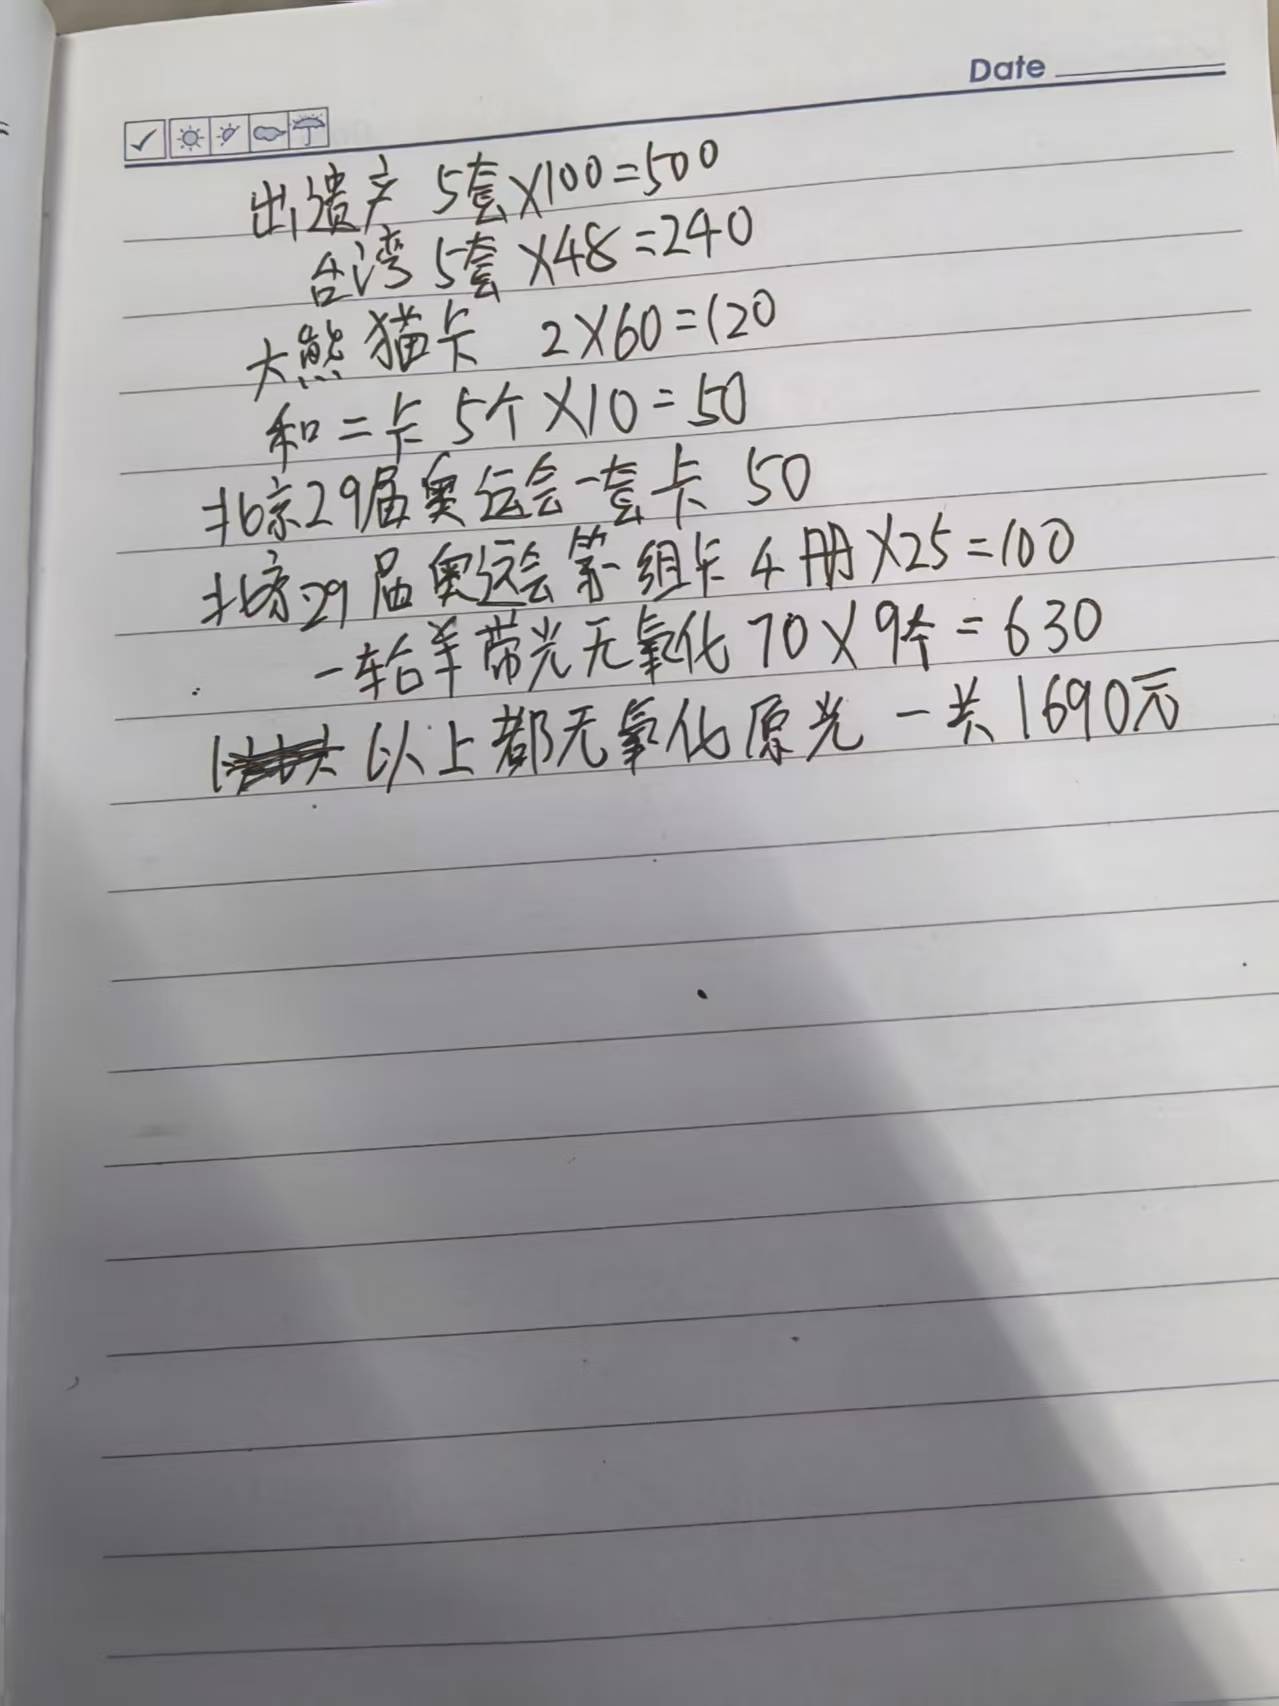 Date
出遗产 5套×100=500
台湾 5套 ×48=240
大熊猫卡 2×60=120
和二卡 5个×10=50
北京29届奥运会一套卡 50
北京29届奥运会第一组卡 4册×25=100
一轮羊带光无氧化 70×9个=630
以上都无氧化原光 一共1690元